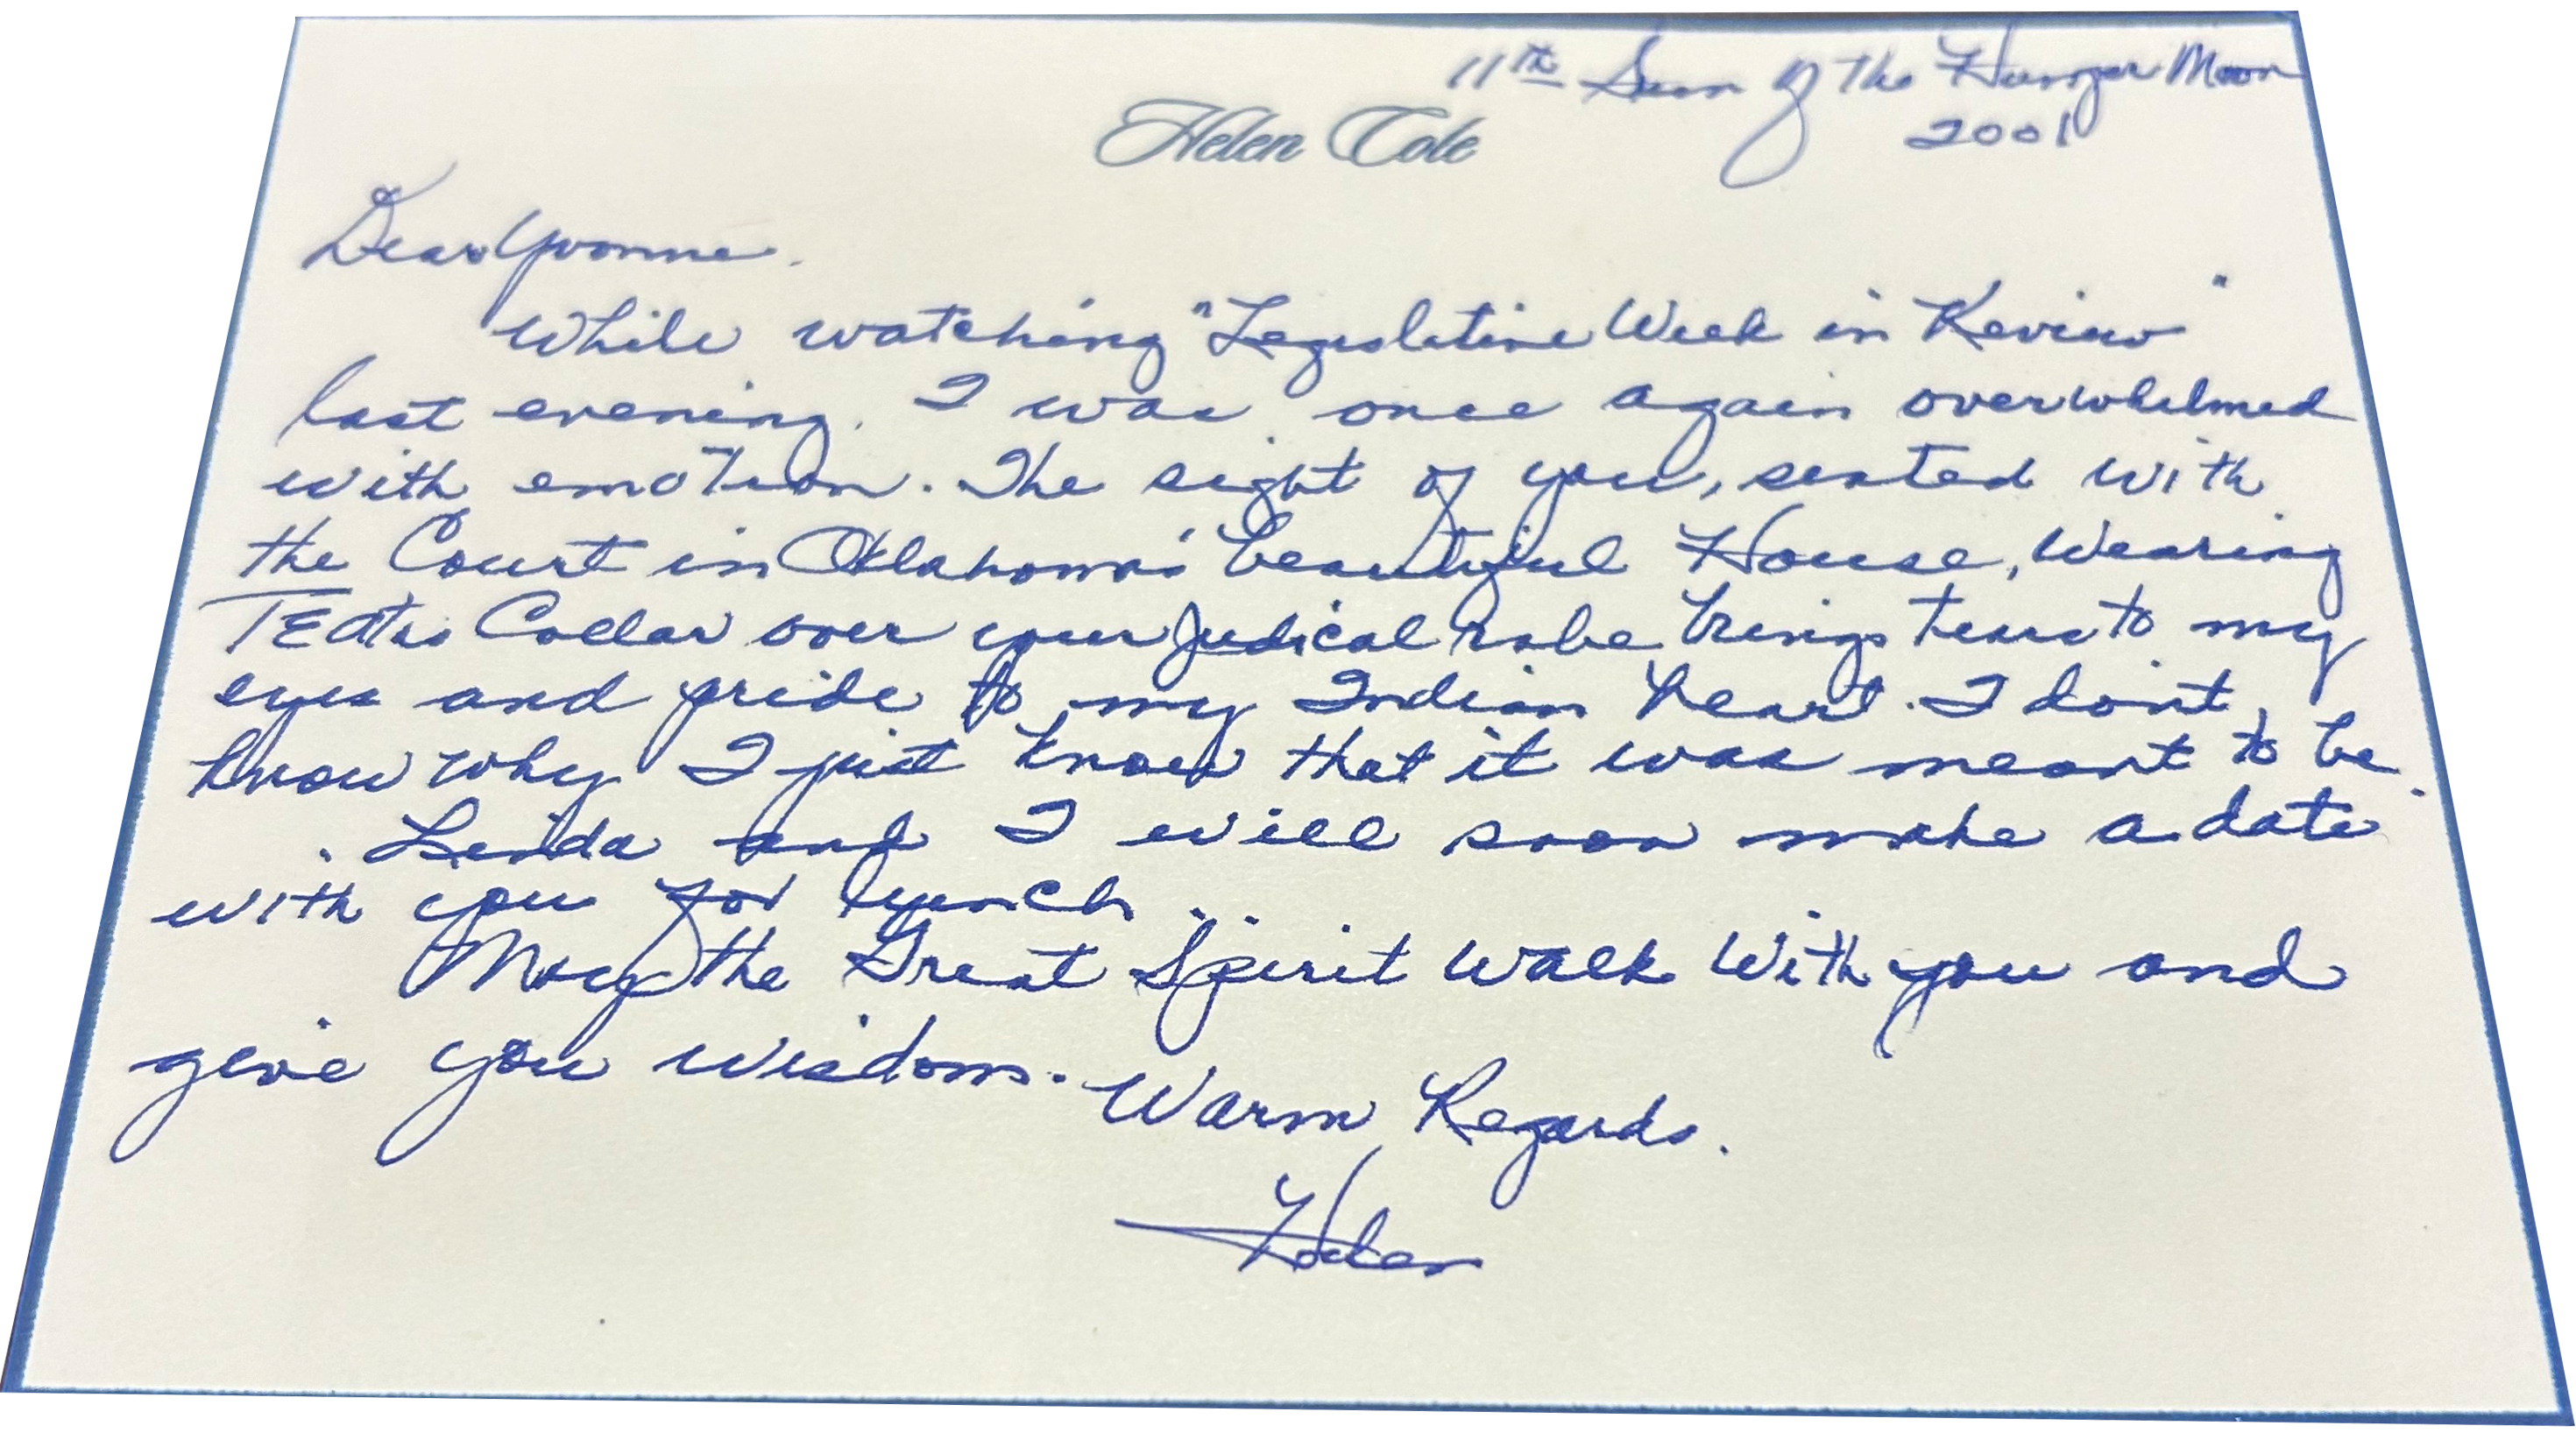 11th Sun of the Hunger Moon
2001
Helen Cole
Dear Yvonne.
While watching "Legislative Week in Review"
last evening, I was once again overwhelmed
with emotion. The sight of you, seated with
the Court in Oklahoma's beautiful House, wearing
TEAta's Collar over your Judical robe brings tears to my
eyes and pride to my Indian heart. I don't
know why I just know that it was meant to be.
Linda and I will soon make a date
with you for lunch.
May the Great Spirit walk with you and
give you wisdom.
Warm Regards.
Helen